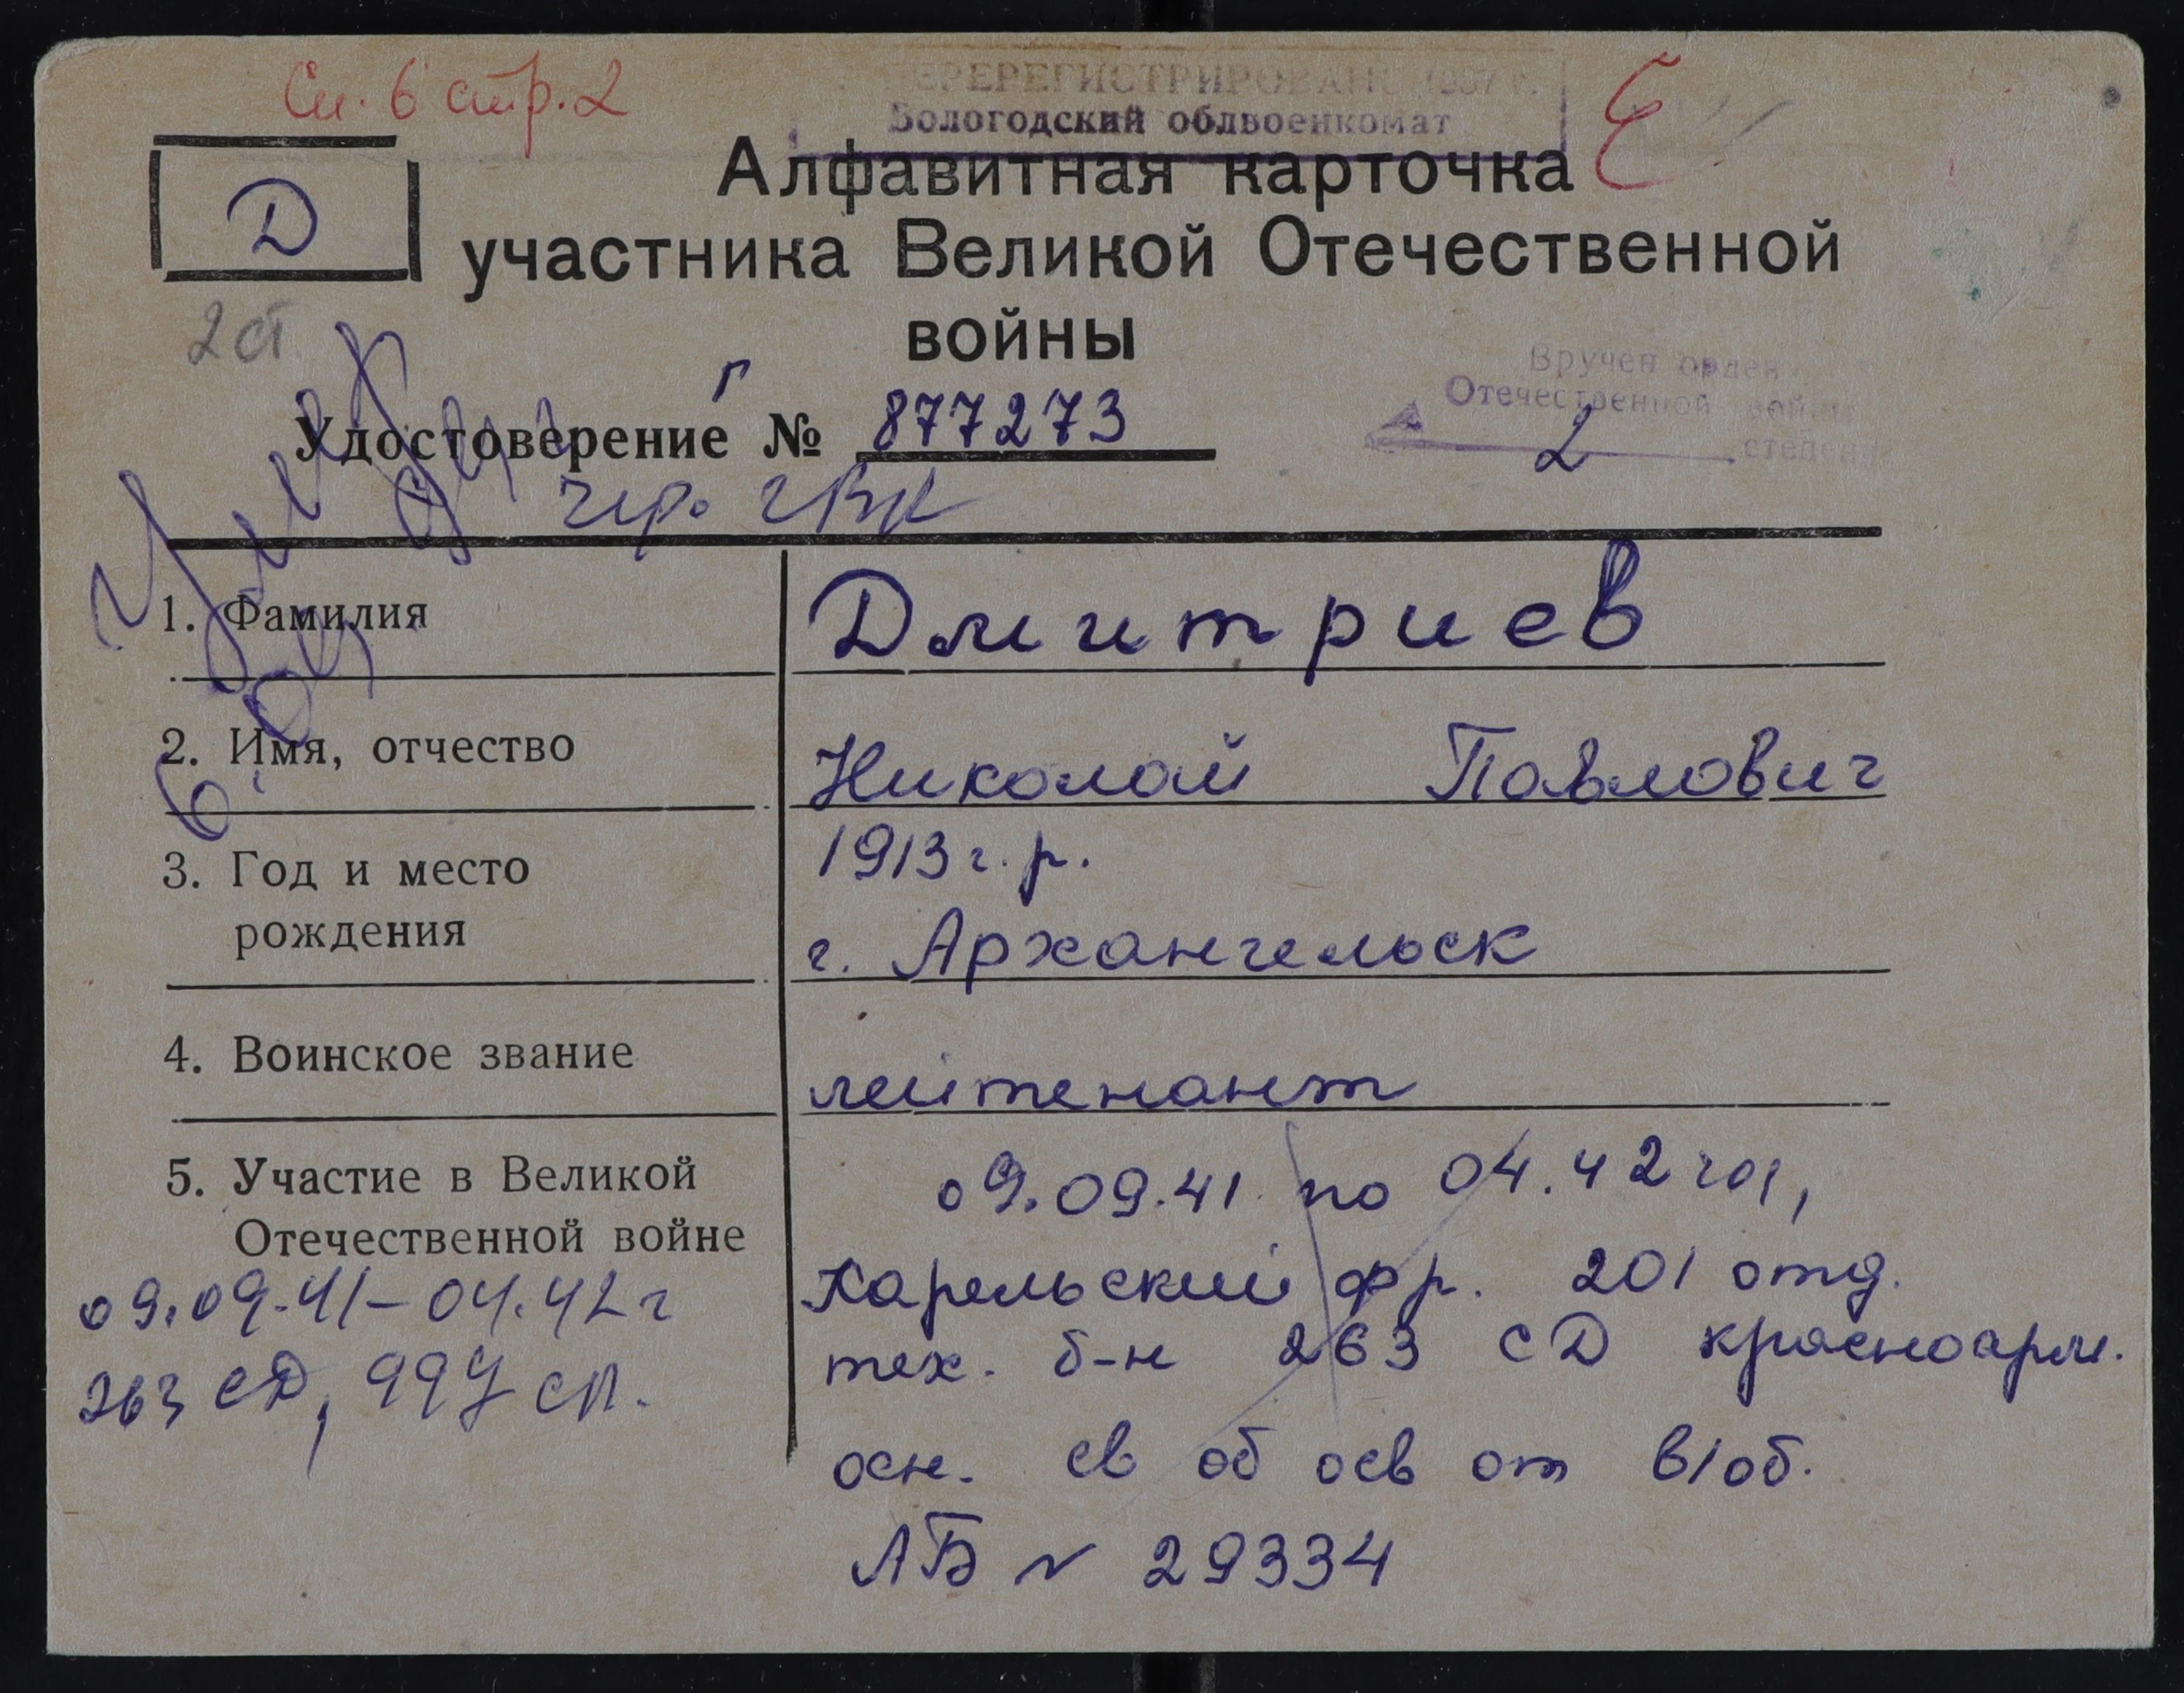 Сп. 6 стр. 2
ПЕРЕРЕГИСТРИРОВАН
Вологодский облвоенкомат
Д
Алфавитная карточка
участника Великой Отечественной
войны
2 ст
Вручен орден
Отечественной войны
2 степени
Г
Удостоверение № 877273
чер. гвк
Умер
1. Фамилия Дмитриев
2. Имя, отчество Николай Павлович
3. Год и место рождения 1913 г. р.
г. Архангельск
4. Воинское звание лейтенант
5. Участие в Великой Отечественной войне
09.09.41 по 04.42 год,
Карельский фр. 201 отд.
тех. б-н 263 СД красноарм.
осн. св об осв от в/об.
АБ № 29334
09.09.41-04.42 г
263 СД, 99 СП.